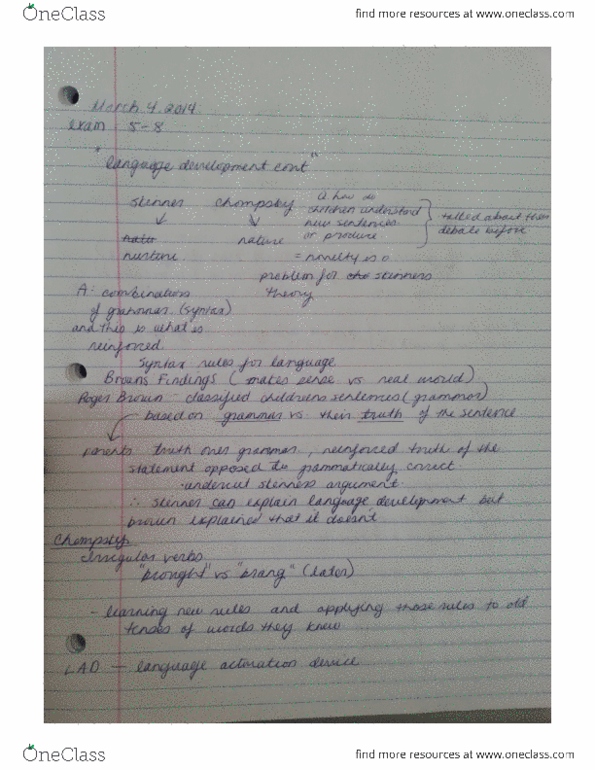 OneClass find more resources at www.oneclass.com
March 4. 2014
exam : 5-8
"language development cont"
skinner chompsky Q how do
children understand
new sentences
or produce
talked about this
debate before
nurture nature = novelty is a
problem for skinners
theory
A: combinations
of grammar (syntax)
and this is what is
reinforced.
Syntax rules for language
Browns Findings (makes sense vs real world)
Roger Brown - classified childrens sentences (grammar)
based on grammar vs their truth of the sentence
parents truth over grammar, reinforced truth of the
statement opposed to grammatically correct
· undercut skinners argument.
∴ skinner can explain language development but
brown explained that it doesn't
Chompsky
irregular verbs
"brought" vs "brang" (later)
- learning new rules and applying those rules to old
tenses of words they knew
LAD — language activation device
OneClass find more resources at www.oneclass.com